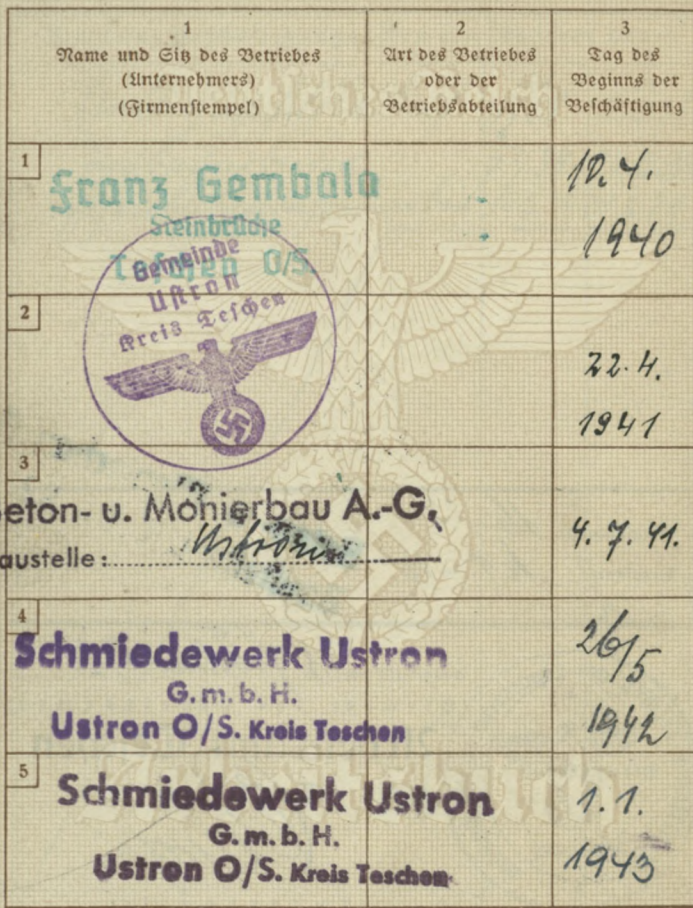 1
Name und Sitz des Betriebes
(Unternehmers)
(Firmenstempel)
2
Art des Betriebes
oder der
Betriebsabteilung
3
Tag des
Beginns der
Beschäftigung
1
Franz Gembala
Steinbrüche
Teschen O/S.
10. 4.
1940
2
Gemeinde
Ustron
Kreis Teschen
22. 4.
1941
3
Beton- u. Monierbau A.-G.
Baustelle: Ustron
4. 7. 41.
4
Schmiedewerk Ustron
G. m. b. H.
Ustron O/S. Kreis Teschen
26/5
1942
5
Schmiedewerk Ustron
G. m. b. H.
Ustron O/S. Kreis Teschen
1. 1.
1943
Arbeitsbuch